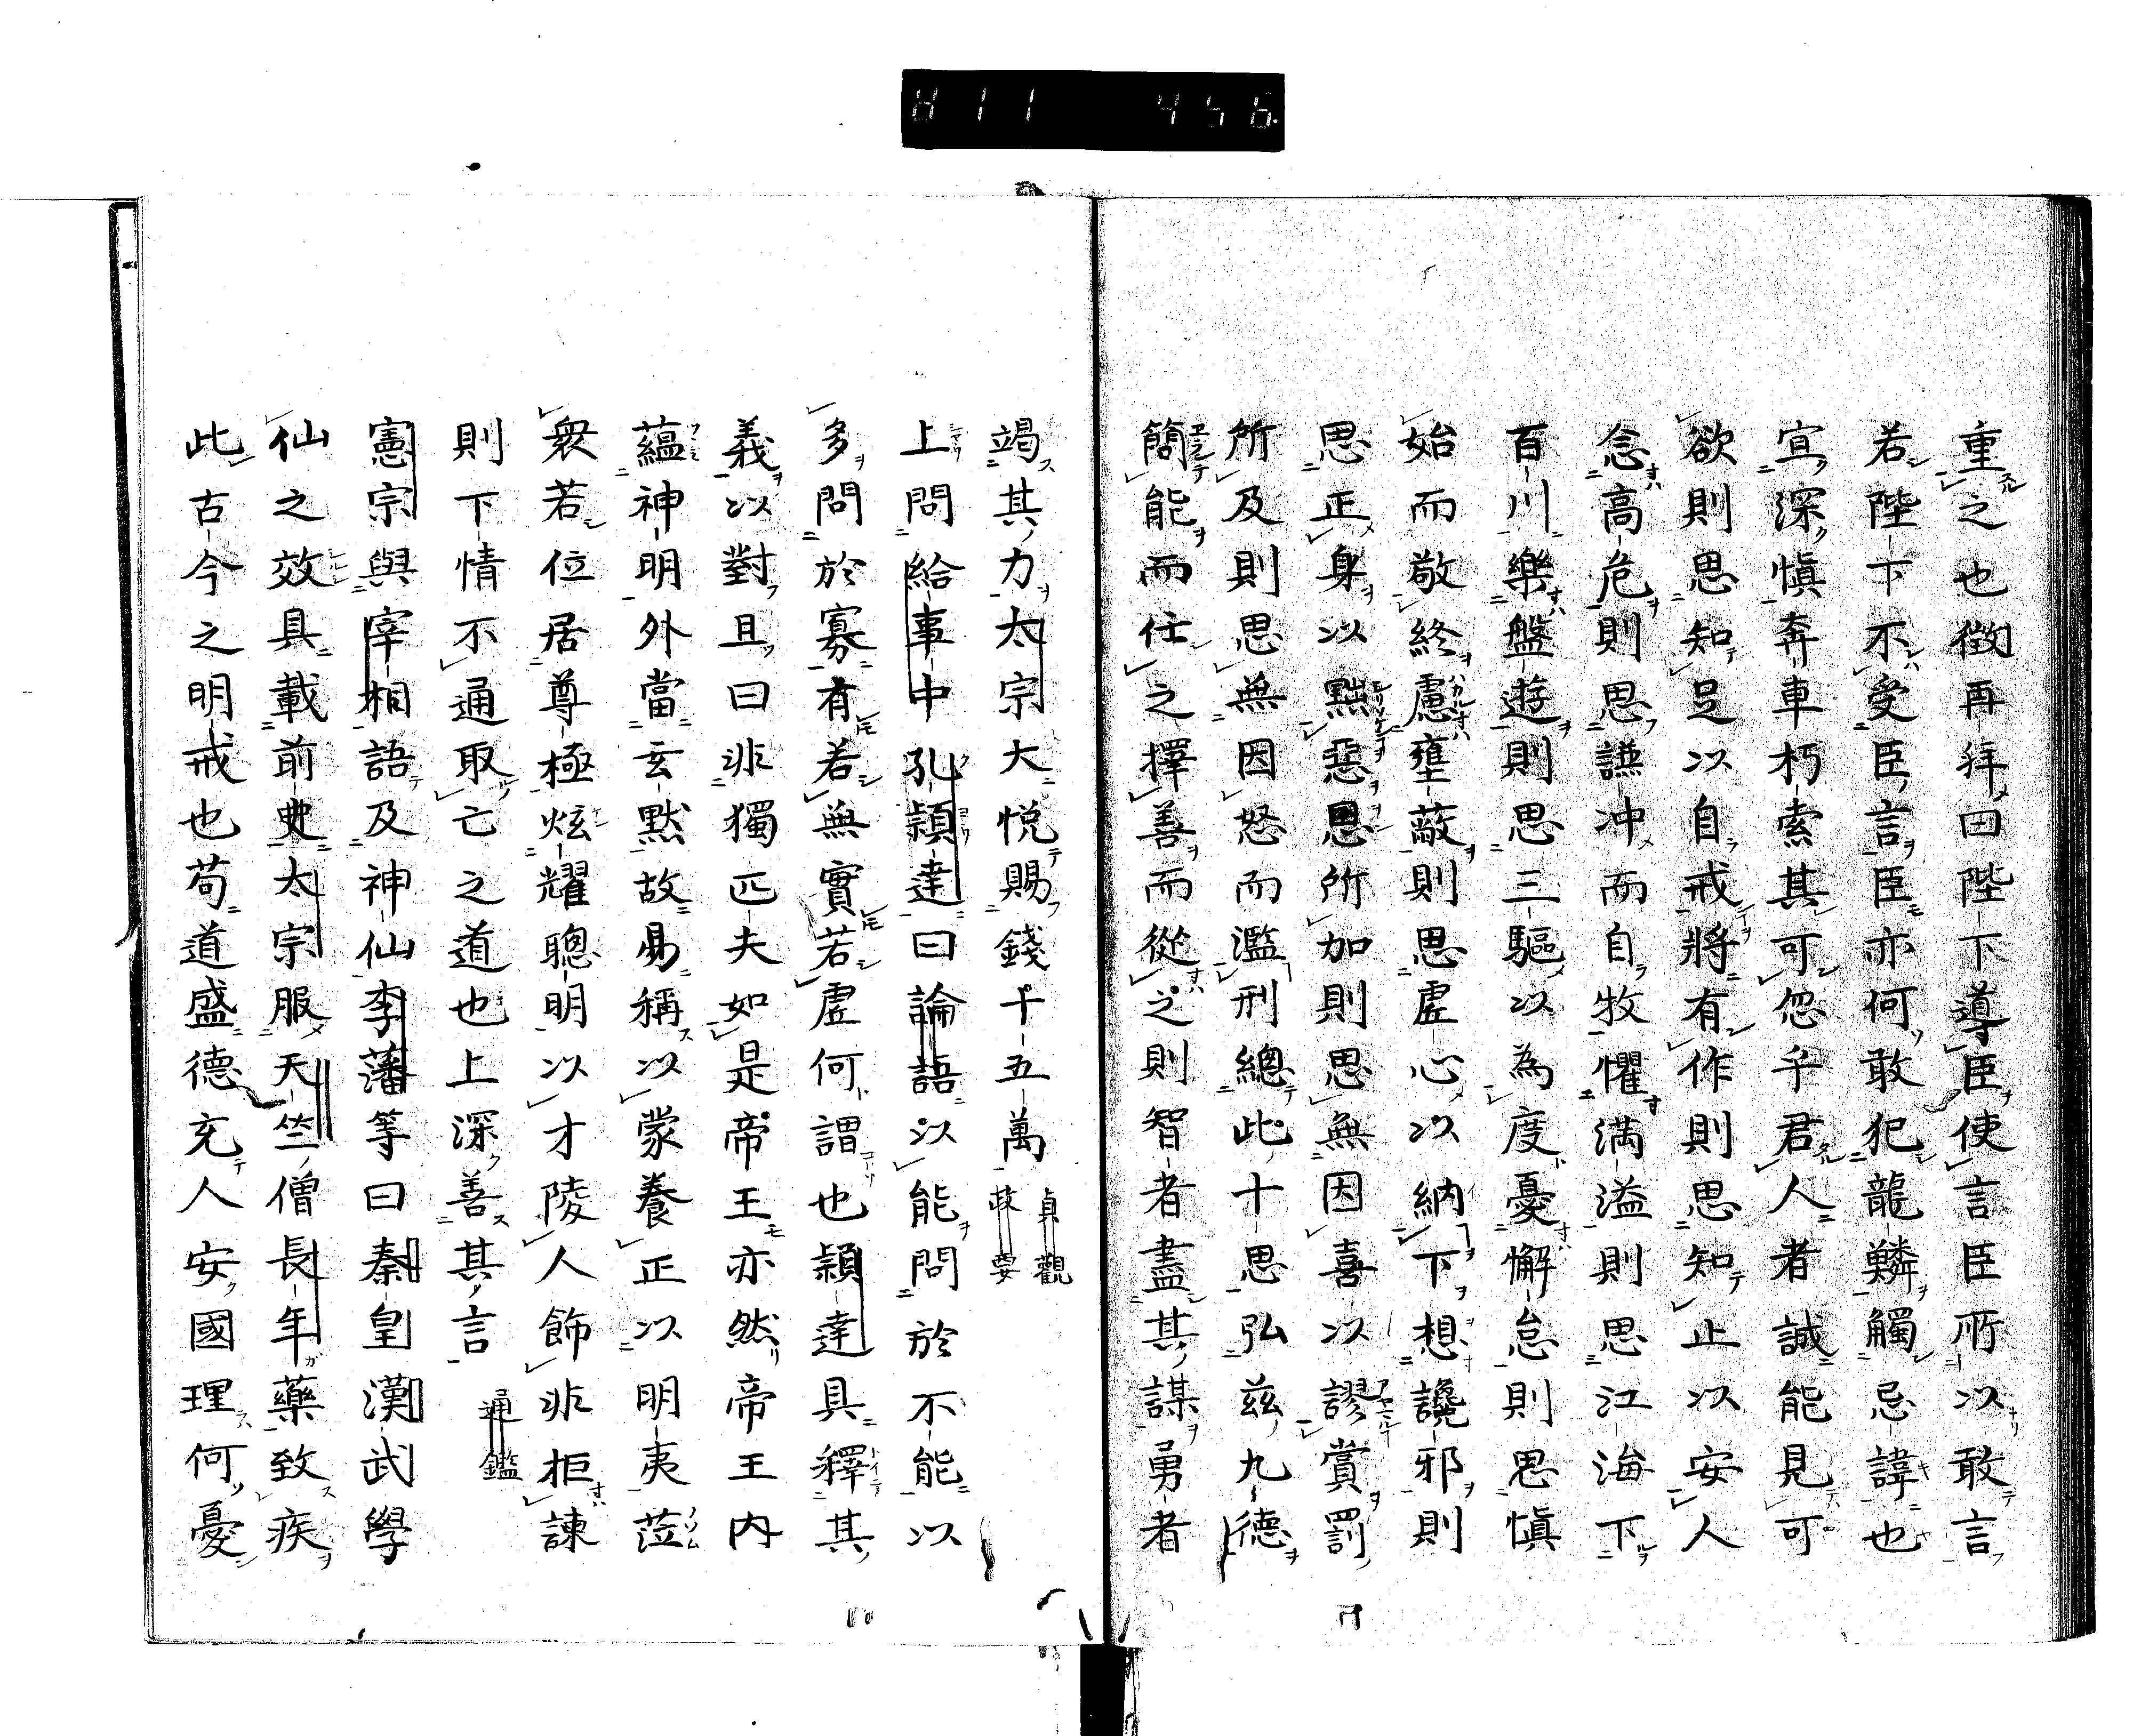 重之也徴再拜曰陛下導臣使言臣所以敢言
若陛下不受臣言臣亦何敢犯龍鱗觸忌諱也
宜深愼奔車朽索其可忽乎君人者誠能見可
欲則思知足以自戒將有作則思知止以安人
念高危則思謙冲而自牧懼満溢則思江海下
百川樂盤遊則思三驅以為度憂懈怠則思愼
始而敬終慮壅蔽則思虚心以納下想讒邪則
思正身以黜惡恩所加則思無因喜以謬賞罰
所及則思無因怒而濫刑總此十思弘茲九德
簡能而任之擇善而從之則智者盡其謀勇者
竭其力太宗大悦賜錢十五萬 貞觀政要
上問給事中孔頴達曰論語以能問於不能以
多問於寡有若無實若虚何謂也頴達具釋其
義以對且曰非獨匹夫如是帝王亦然帝王内
蘊神明外當玄默故易稱以蒙養正以明夷莅
衆若位居尊極炫耀聰明以才陵人飾非拒諫
則下情不通取亡之道也上深善其言 通鑑
憲宗與宰相語及神仙李藩等曰秦皇漢武學
仙之效具載前史太宗服天竺僧長年藥致疾
此古今之明戒也苟道盛德充人安國理何憂